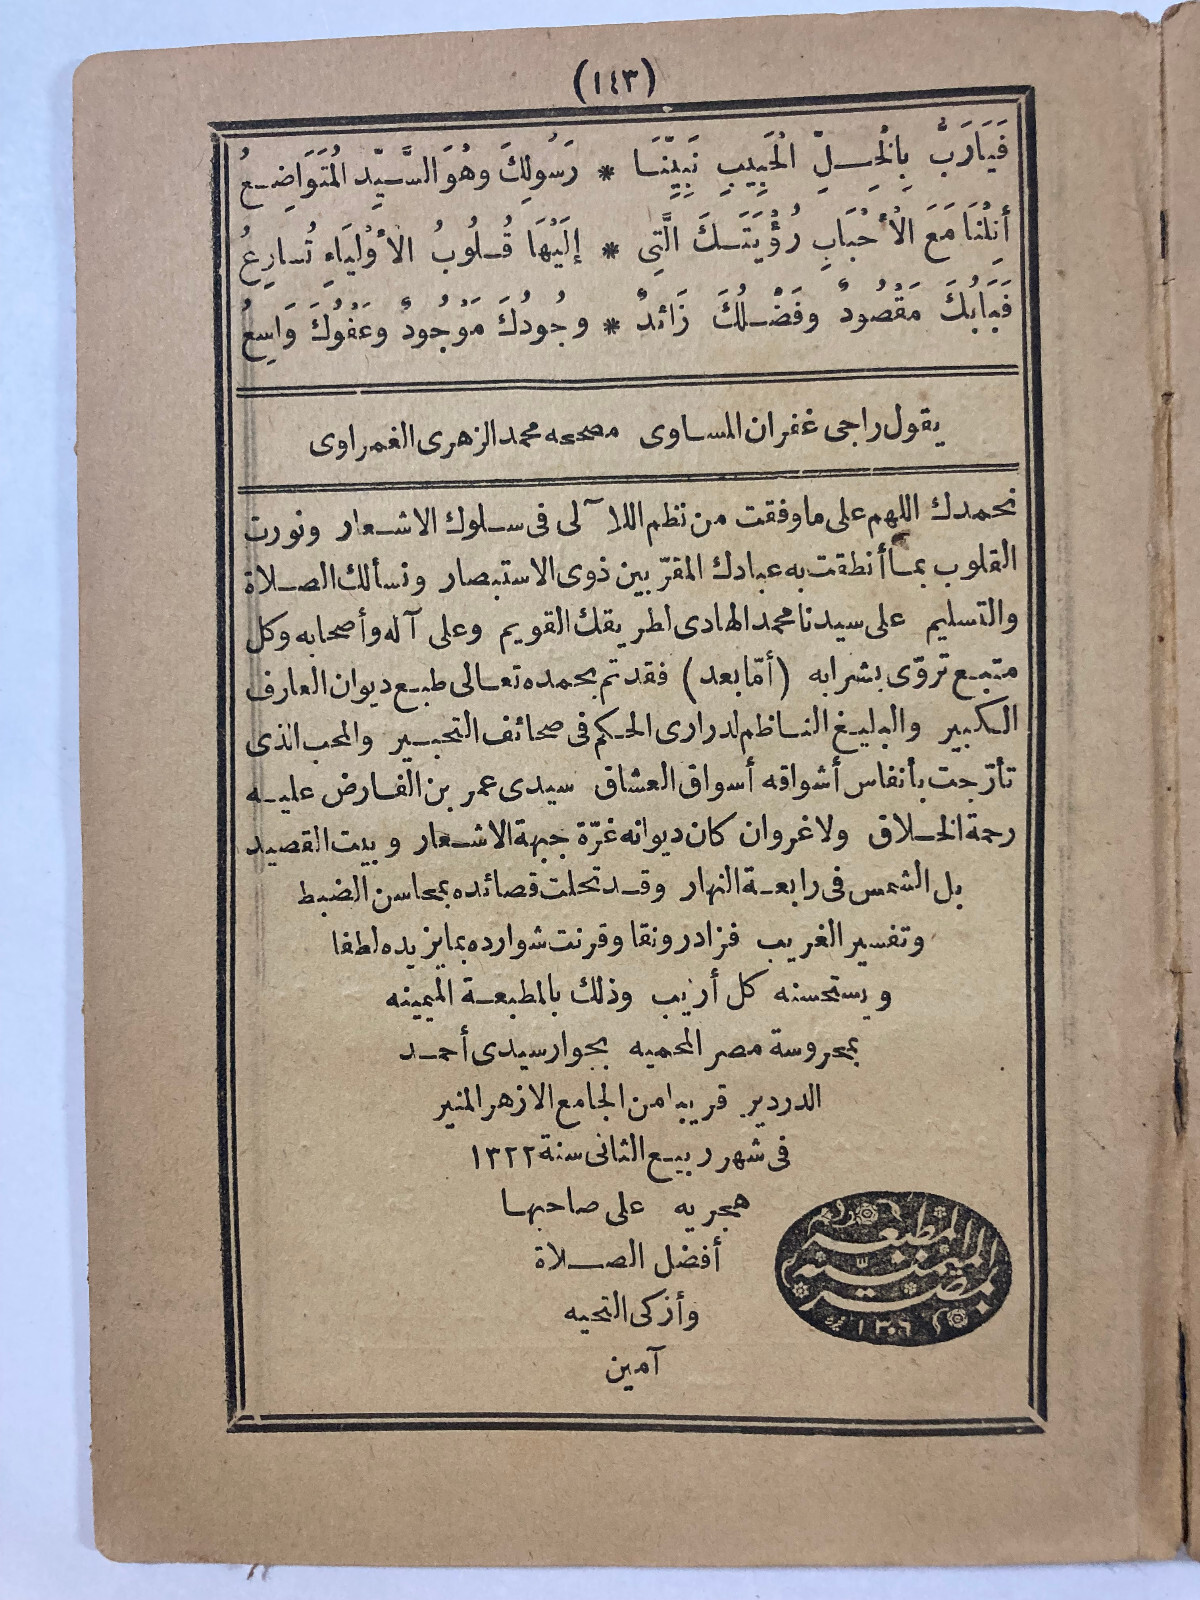 (١٤٣)
فَيَارَبُّ بِالْخِلِّ الْحَبِيبِ نَبِيِّنَا * رَسُولِكَ وهُوَ السَّيِّدِ الْمُتَوَاضِعُ
أَنِلْنَا مَعَ الْأَحْبَابِ رُؤْيَتَكَ الَّتِي * إِلَيْهَا قُلُوبُ الأَوْلِيَاءِ تُسَارِعُ
فَبَابُكَ مَقْصُودٌ وفَضْلُكَ زَائدٌ * وجُودُكَ مَوْجُودٌ وعَفْوُكَ وَاسِعُ
يقول راجى غفران المساوى مصححه محمد الزهرى الغمراوى
نحمدك اللهم على ماوفقت من نظم اللآلى فى سلوك الاشعار ونورت
القلوب بما أنطقت به عبادك المقرّبين ذوى الاستبصار ونسألك الصلاة
والتسليم على سيدنا محمد الهادى لطريقك القويم وعلى آله وأصحابه وكل
متبع تروّى بشرابه (أمّا بعد) فقد تم بحمده تعالى طبع ديوان العارف
الكبير والبليغ الناظم لدرارى الحكم فى صحائف التحبير والمحب الذى
تأرّجت بأنفاس أشواقه أسواق العشاق سيدى عمر بن الفارض عليه
رحمة الخلاق ولاغروان كان ديوانه غرّة جبهة الاشعار وبيت القصيد
بل الشمس فى رابعة النهار وقد تحلت قصائده بمحاسن الضبط
وتفسير الغريب فزاد رونقا وقرنت شوارده بما يزيده لطفا
ويستحسنه كل أريب وذلك بالمطبعة الميمينه
بمحروسة مصر المحميه بجوار سيدى أحمد
الدردير قريبا من الجامع الازهر المنير
فى شهر ربيع الثانى سنة ١٣٢٢
هجريه على صاحبها
أفضل الصلاة
وأزكى التحيه
آمين
المطبعة
الميمنية
بمصر
١٣٠٦